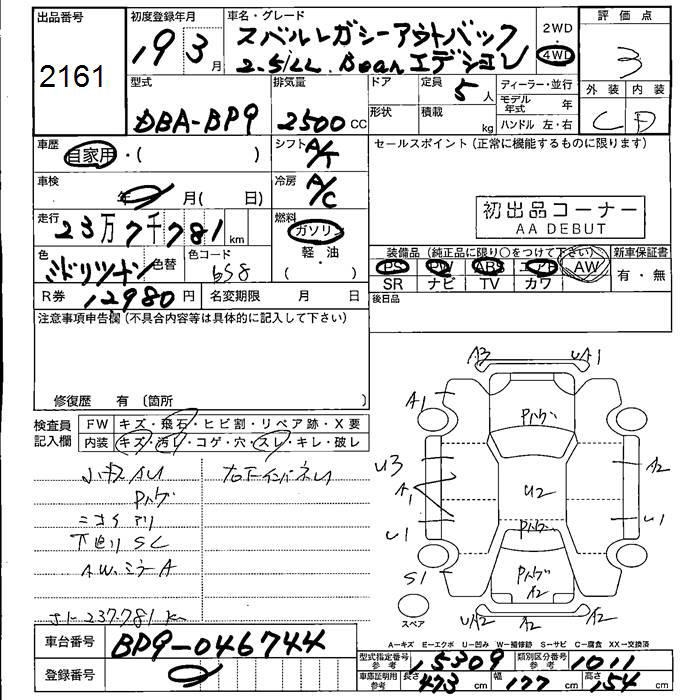 出品番号
2161
初度登録年月
19 3 月
車名・グレード
スバルレガシーアウトバック
2.5i LL Bean エデション
2WD
・
4WD
評価点
3
外装 内装
C D
型式
DBA-BP9
排気量
2500 CC
ドア
形状
定員
5 人
積載
kg
ディーラー・並行
モデル年式 年
ハンドル 左・右
車歴
自家用・( )
シフト
A/T
セールスポイント(正常に機能するものに限ります)
車検
年 月( 日)
冷房
A/C
初出品コーナー
AA DEBUT
走行
23万7千781 km
燃料
ガソリン
軽油
( ・ )
色
ミドリツートン
色替
色コード
655
装備品(純正品に限り○をつけて下さい)
PS PW ABS エアB AW
SR ナビ TV カワ
新車保証書
有・無
R券 12980 円
名変期限 月 日
後日品
注意事項申告欄(不具合内容等は具体的に記入して下さい)
修復歴 有(箇所 )
検査員記入欄
FW キズ・飛石・ヒビ割・リペア跡・X要
内装 キズ・汚レ・コゲ・穴・スレ・キレ・破レ
小キズAU
Pハゲ
右下インパネU
下廻り SC
A.W. ミラーA
237.781 K
A3 UA1
A1
Pハゲ
U3
A1
U1
S1
U2
Pハゲ
A2
U1
Pハゲ
A2
UA2 A2 A2
スペア
A-キズ E-エクボ U-凹み W-補修跡 S-サビ C-腐食 XX-交換済
車台番号
BP9-046744
登録番号
型式指定番号 参考 15309
類別区分番号 参考 1011
車庫証明用 参考 長さ 473 cm 幅 177 cm 高さ 154 cm